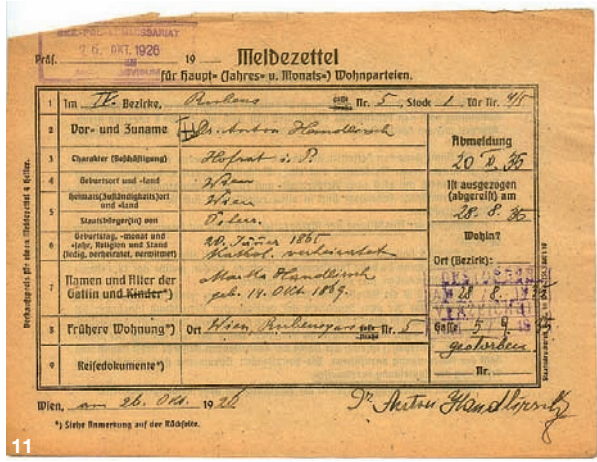 BEZ. POL. KOMMISSARIAT
26. OKT. 1926
Präs. 19
Meldezettel
für Haupt- (Jahres- u. Monats-) Wohnparteien.
1 Im IV. Bezirke, Rubens Gasse Nr. 5, Stock 1, Tür Nr. 4/5
2 Vor- und Zuname Dr. Anton Handlirsch
3 Charakter (Beschäftigung) Hofrat i. P.
4 Geburtsort und -land Wien
5 Heimats(Zuständigkeits)ort und -land Wien
Staatsbürger(in) von Österr.
6 Geburtstag, -monat und -jahr, Religion und Stand (ledig, verheiratet, verwitwet)
20. Jänner 1865
Kathol. verheiratet
7 Namen und Alter der Gattin und Kinder*)
Martha Handlirsch
geb. 14. Okt 1869.
8 Frühere Wohnung*) Ort Wien, Rubensgasse Nr. 5
9 Reisedokumente*)
Abmeldung
Ist ausgezogen
(abgereist) am
28. 8. 35
Wohin?
Ort (Bezirk):
28 8. 35
Gasse
gestorben
Nr.
Wien, am 26. Okt. 1926
Dr. Anton Handlirsch
*) Siehe Anmerkung auf der Rückseite.
Verkaufspreis für einen Meldezettel 4 Heller.
11